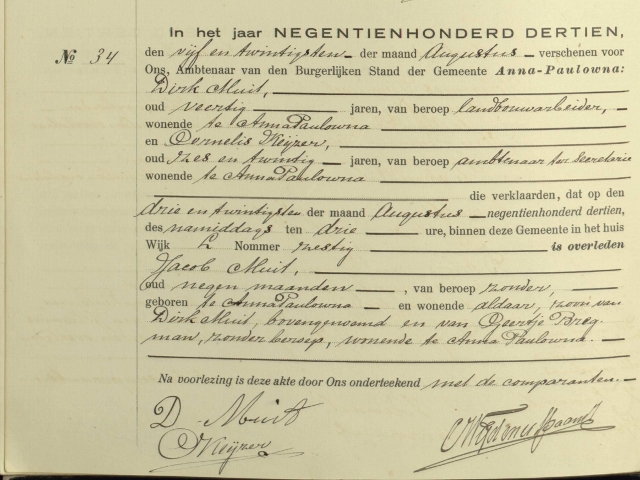 In het jaar NEGENTIENHONDERD DERTIEN,
№ 34
den vijf en twintigsten der maand Augustus verschenen voor
Ons, Ambtenaar van den Burgerlijken Stand der Gemeente Anna-Paulowna:
Dirk Muit,
oud veertig jaren, van beroep landbouwarbeider,
wonende te Anna Paulowna
en Cornelis Keijzer,
oud zes en twintig jaren, van beroep ambtenaar ter Secretarie
wonende te Anna Paulowna
die verklaarden, dat op den
drie en twintigsten der maand Augustus negentienhonderd dertien,
des namiddags ten drie ure, binnen deze Gemeente in het huis
Wijk L Nommer zestig is overleden
Jacob Muit,
oud negen maanden, van beroep zonder,
geboren te Anna Paulowna en wonende aldaar, zoon van
Dirk Muit, bovengenoemd en van Geertje Breg-
man, zonder beroep, wonende te Anna Paulowna.
Na voorlezing is deze akte door Ons onderteekend met de comparanten.
D. Muit
CKeijzer